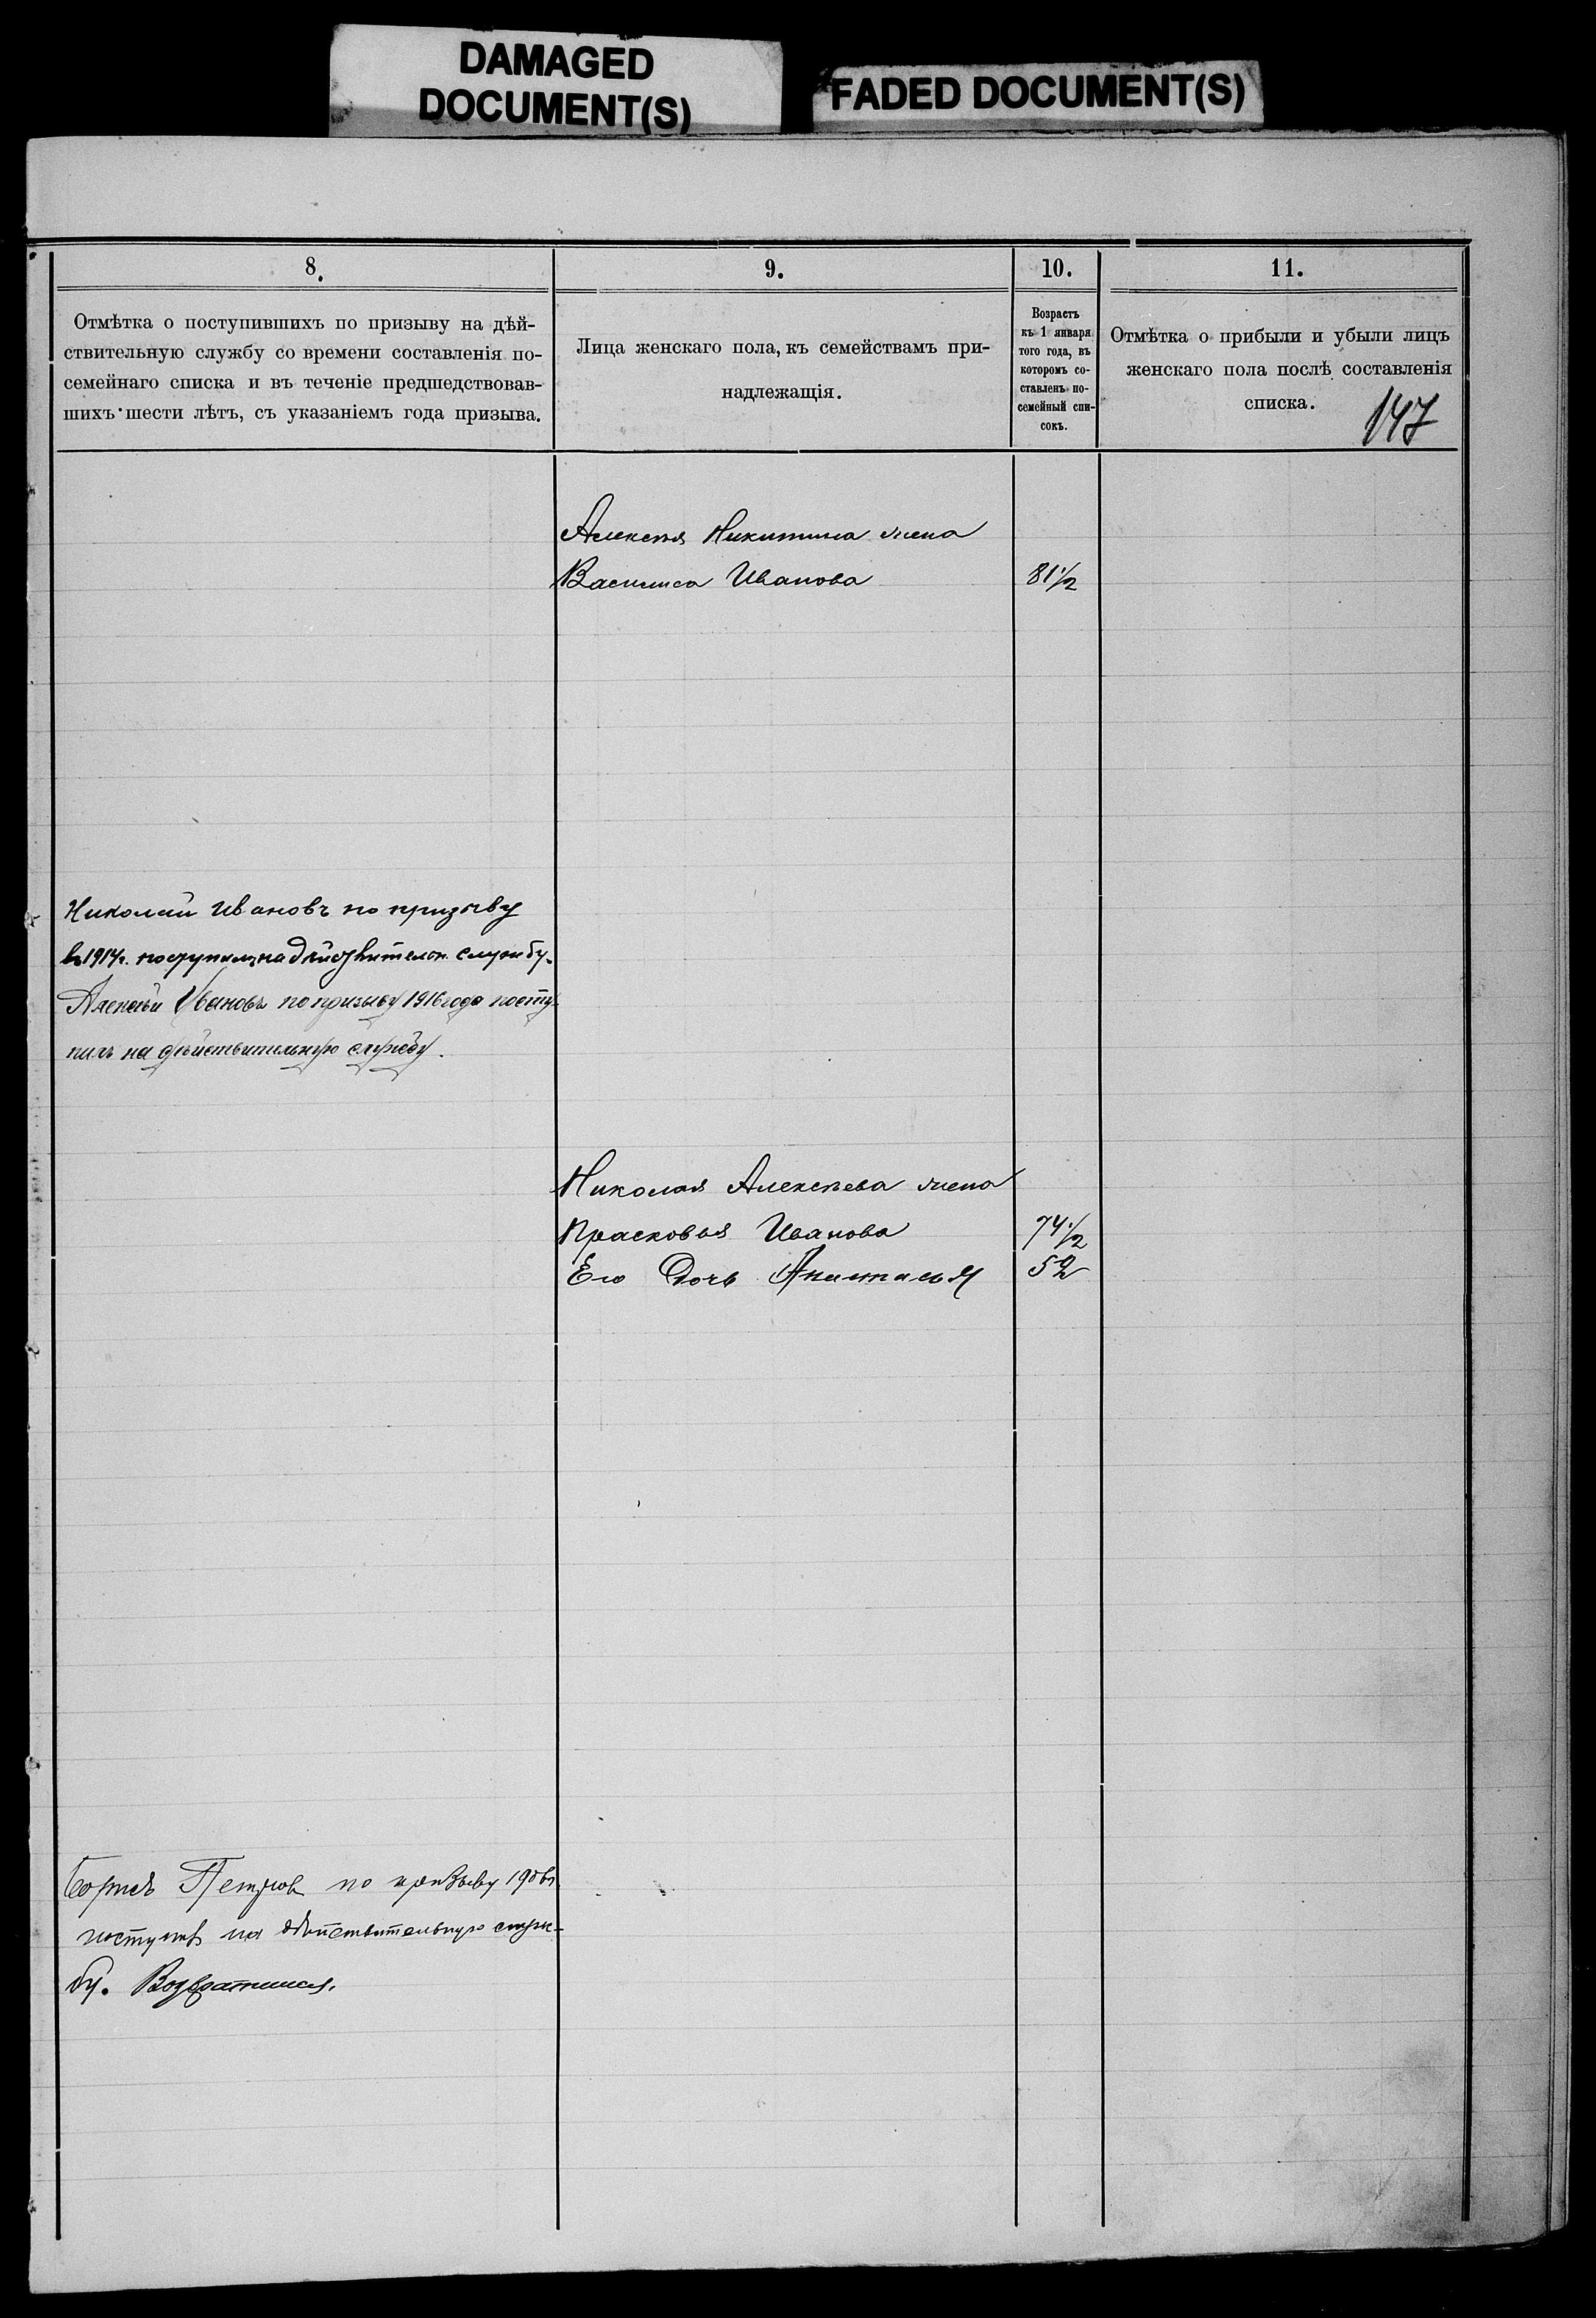 DAMAGED
DOCUMENT(S)
FADED DOCUMENT(S)
8.
Отмѣтка о поступившихъ по призыву на дѣй-
ствительную службу со времени составленія по-
семейнаго списка и въ теченіе предшедствовав-
шихъ шести лѣтъ, съ указаніемъ года призыва.
9.
Лица женскаго пола, къ семействамъ при-
надлежащія.
10.
Возрастъ
къ 1 января
того года, въ
которомъ со-
ставленъ по-
семейный спи-
сокъ.
11.
Отмѣтка о прибыли и убыли лицъ
женскаго пола послѣ составленія
списка.
147
Алексѣя Никитина жена
Василиса Иванова 81½
Николай Ивановъ по призыву
въ 1914г. поступилъ на дѣйствителън. службу.
Алексѣй Ивановъ по призыву 1916 года посту-
пилъ на дѣйствительную службу.
Николая Алексѣева жена
Прасковья Иванова 74½
Его дочь Анастасья 52
Борисъ Петровъ по призыву 1906г.
поступ. на дѣйствительную служ-
бу. Возвратился.